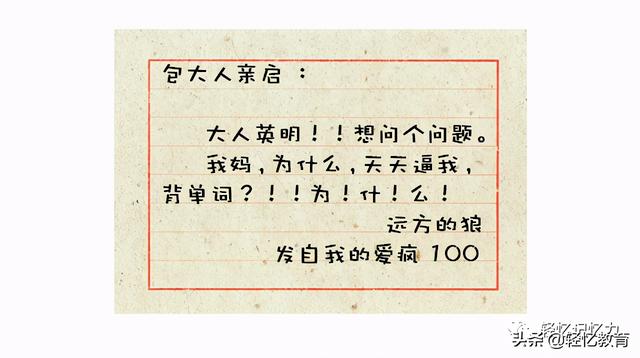 包大人亲启：
大人英明！！想问个问题。
我妈，为什么，天天逼我，
背单词？！！为！什！么！
远方的狼
发自我的爱疯 100
轻忆记忆力
头条 @轻忆教育